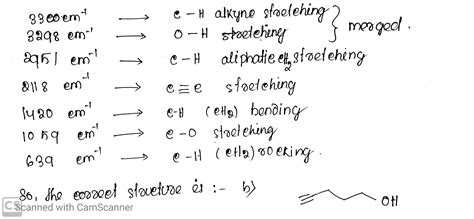 3300 cm⁻¹ → c – H alkyne stretching
3298 cm⁻¹ → O – H stretching } merged.
2951 cm⁻¹ → c – H aliphatic CH₂ stretching
2118 cm⁻¹ → c ≡ c stretching
1420 cm⁻¹ → c-H (CH₂) bending
1059 cm⁻¹ → c – O stretching
639 cm⁻¹ → c – H (CH₂) rocking
So, the correct structure is :- b) OH
CS Scanned with CamScanner